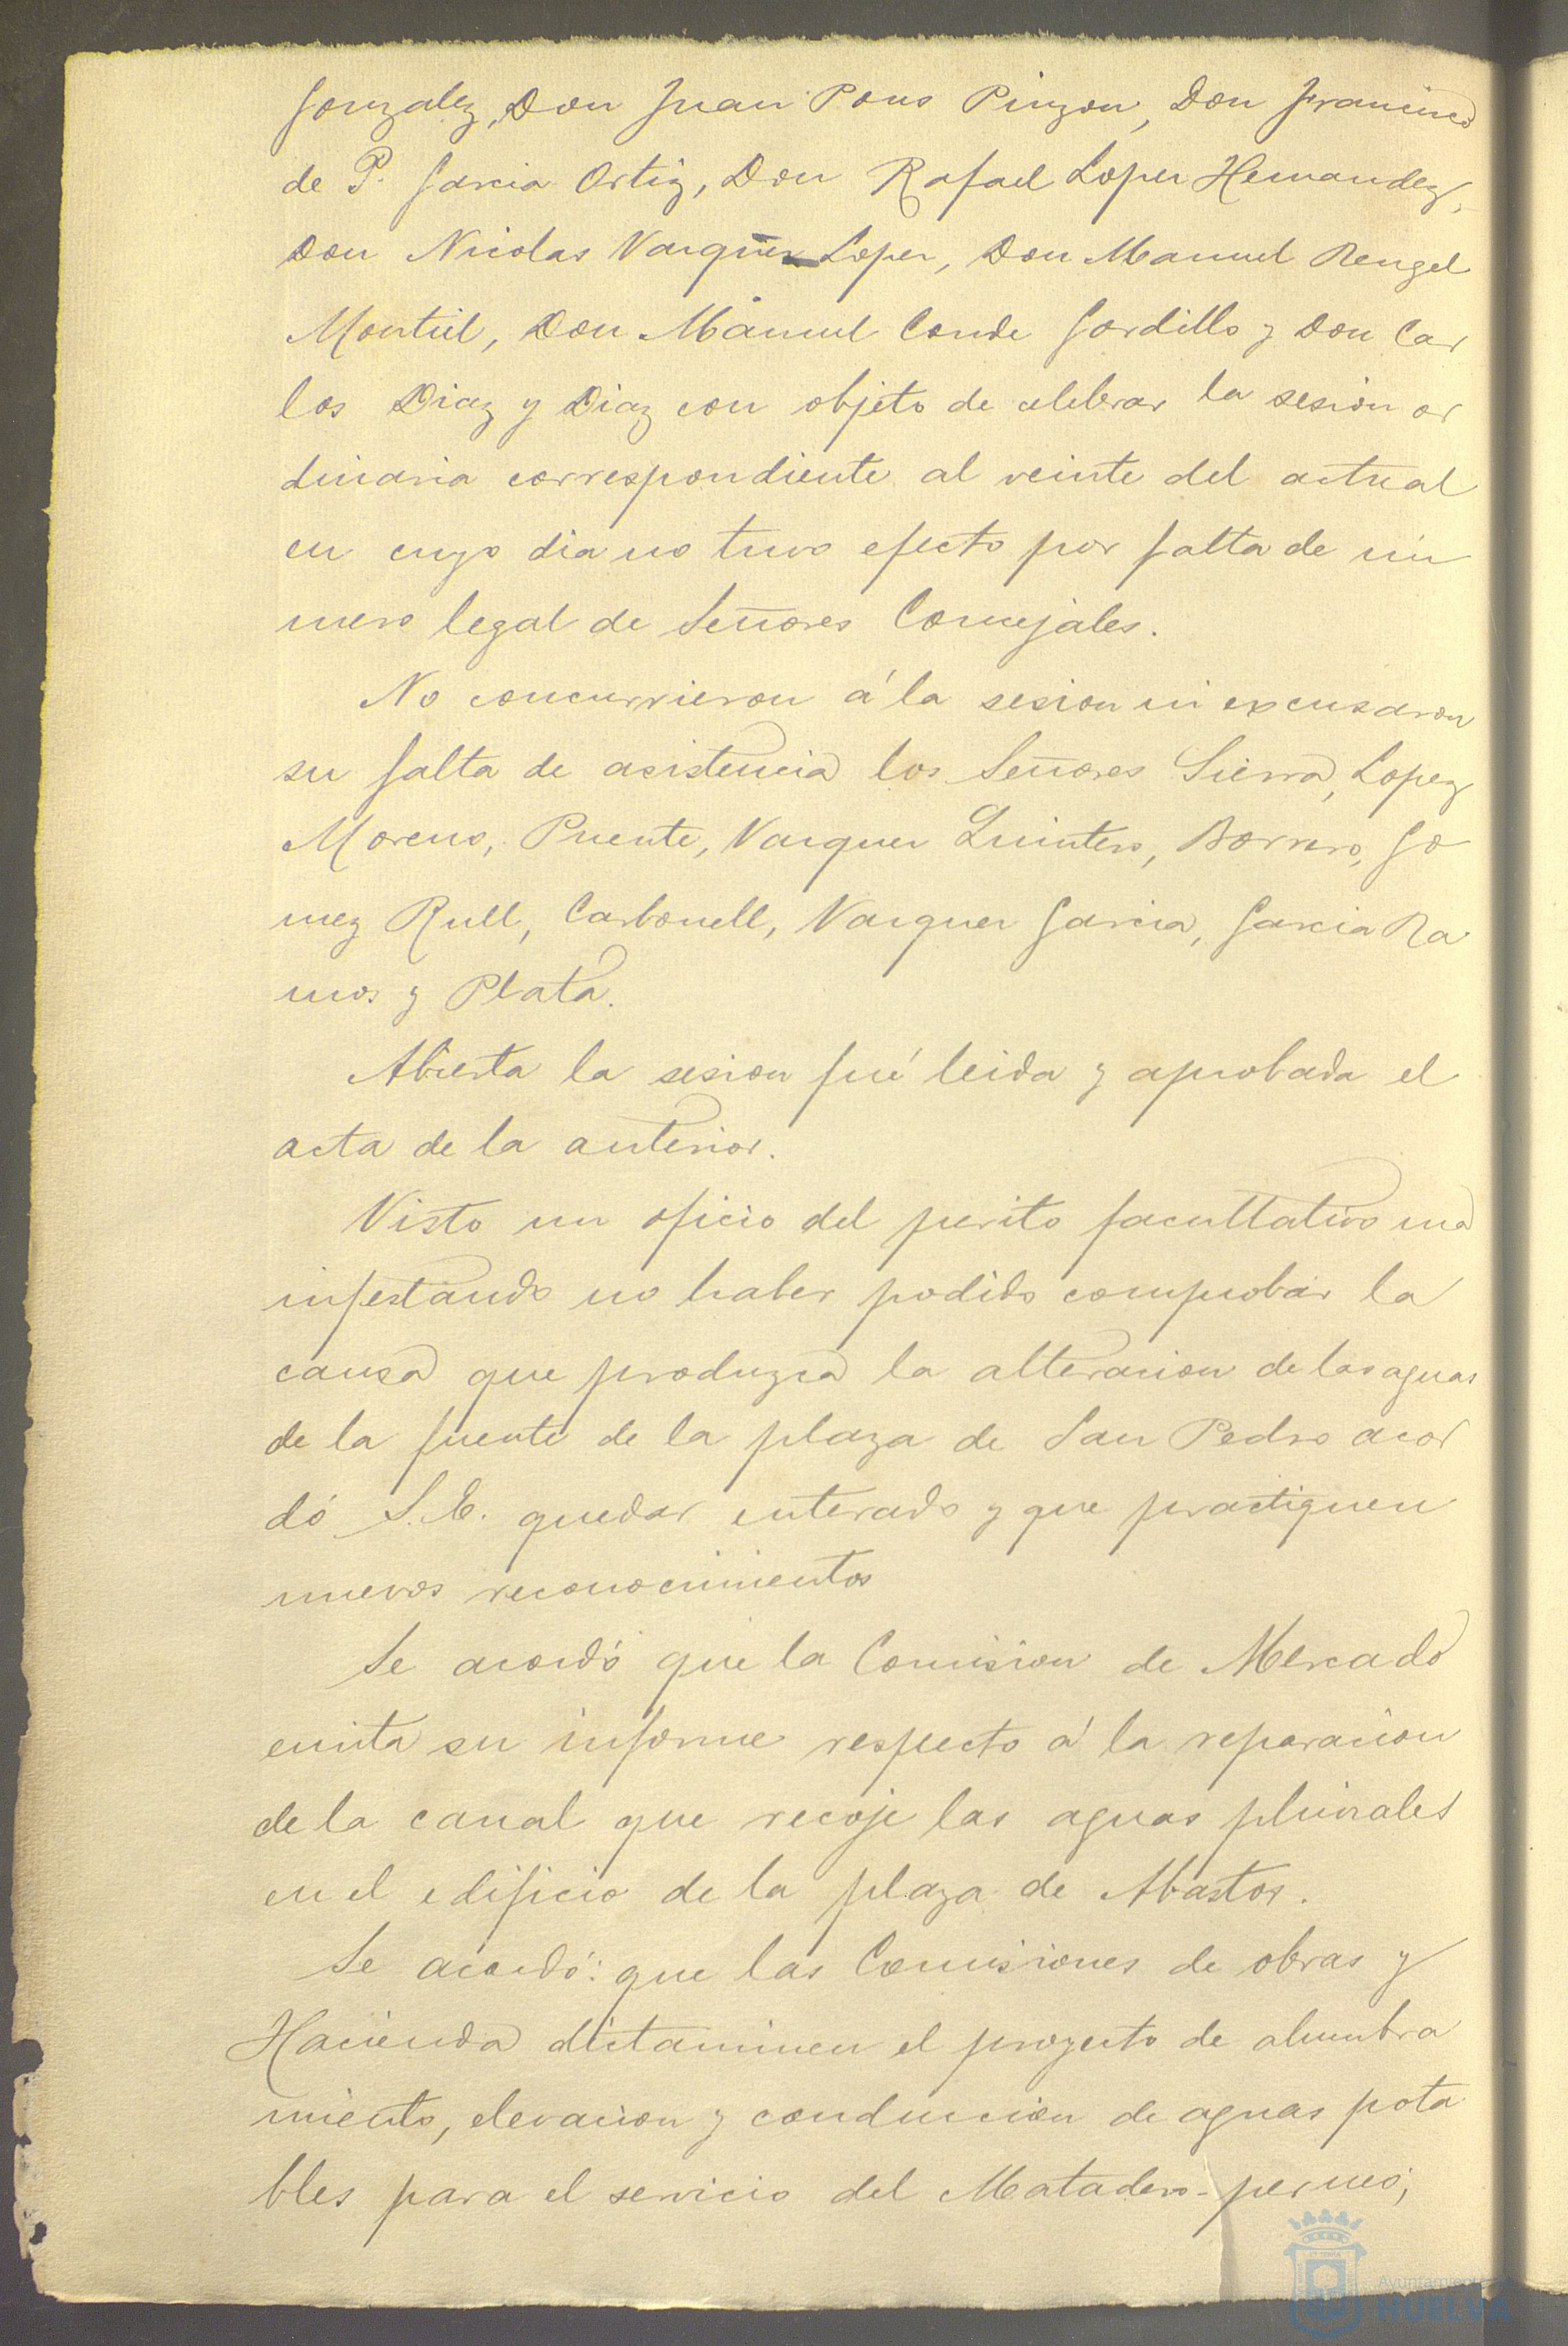 Gonzalez, Don Juan Pons Pinzon, Don Francisco
de P. Garcia Ortiz, Don Rafael Lopez Hernandez,
Don Nicolas Vazquez Lopez, Don Manuel Rengel
Montiel, Don Manuel Conde Gordillo y Don Car
los Diaz y Diaz con objeto de celebrar la sesion or
dinaria correspondiente al veinte del actual
en cuyo dia no tuvo efecto por falta de nú
mero legal de Señores Concejales.
No concurrieron á la sesion ni excusaron
su falta de asistencia los Señores Sierra, Lopez
Moreno, Puente, Vazquez Quintero, Borrero, Go
mez Rull, Carbonell, Vazquez Garcia, Garcia Ra
mos y Plata.
Abierta la sesion fué leida y aprobada el
acta de la anterior.
Visto un oficio del perito facultativo ma
nifestando no haber podido comprobar la
causa que produzca la alteracion de las aguas
de la fuente de la plaza de San Pedro acor
dó S.E. quedar enterado y que practiquen
nuevos reconocimientos
Se acordó que la Comision de Mercado
emita su informe respecto á la reparacion
de la canal que recoje las aguas pluviales
en el edificio de la plaza de Abastos.
Se acordó: que las Comisiones de obras y
Hacienda dictaminen el proyecto de alumbra
miento, elevacion y conduccion de aguas pota
bles para el servicio del Matadero
Ayuntamiento
HUELVA